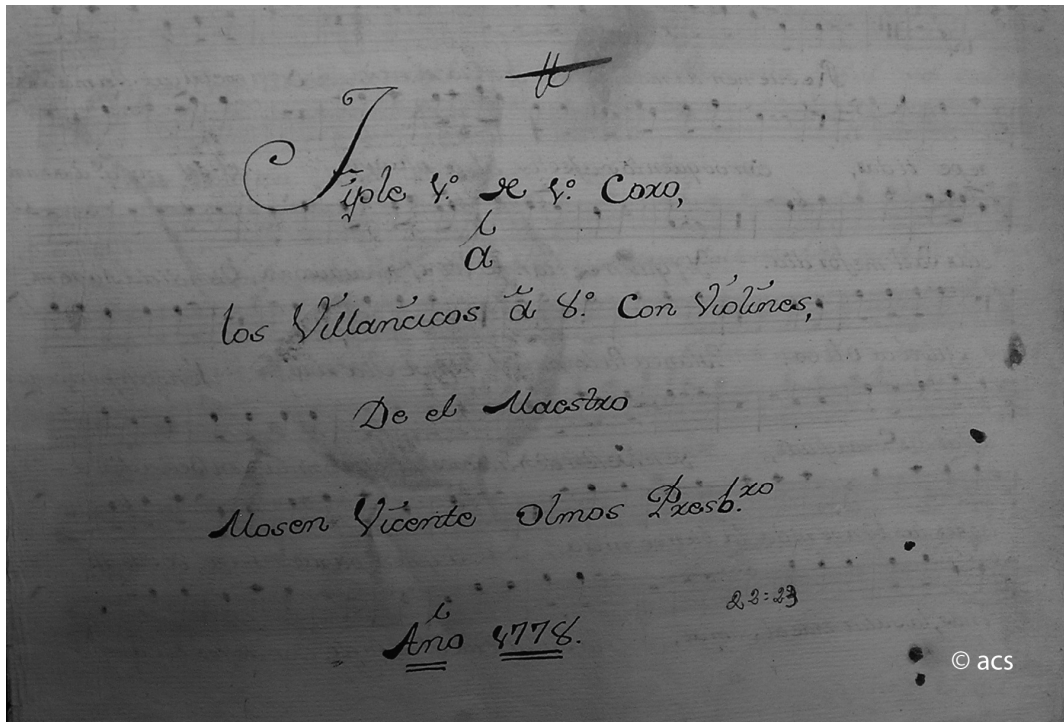 Tiple 1.º de 1.º Coro,
à
los Villancicos à 8.º Con Violines,
De el Maestro
Mosen Vicente Olmos Presb.ro
22=23
Año 1778.
© acs